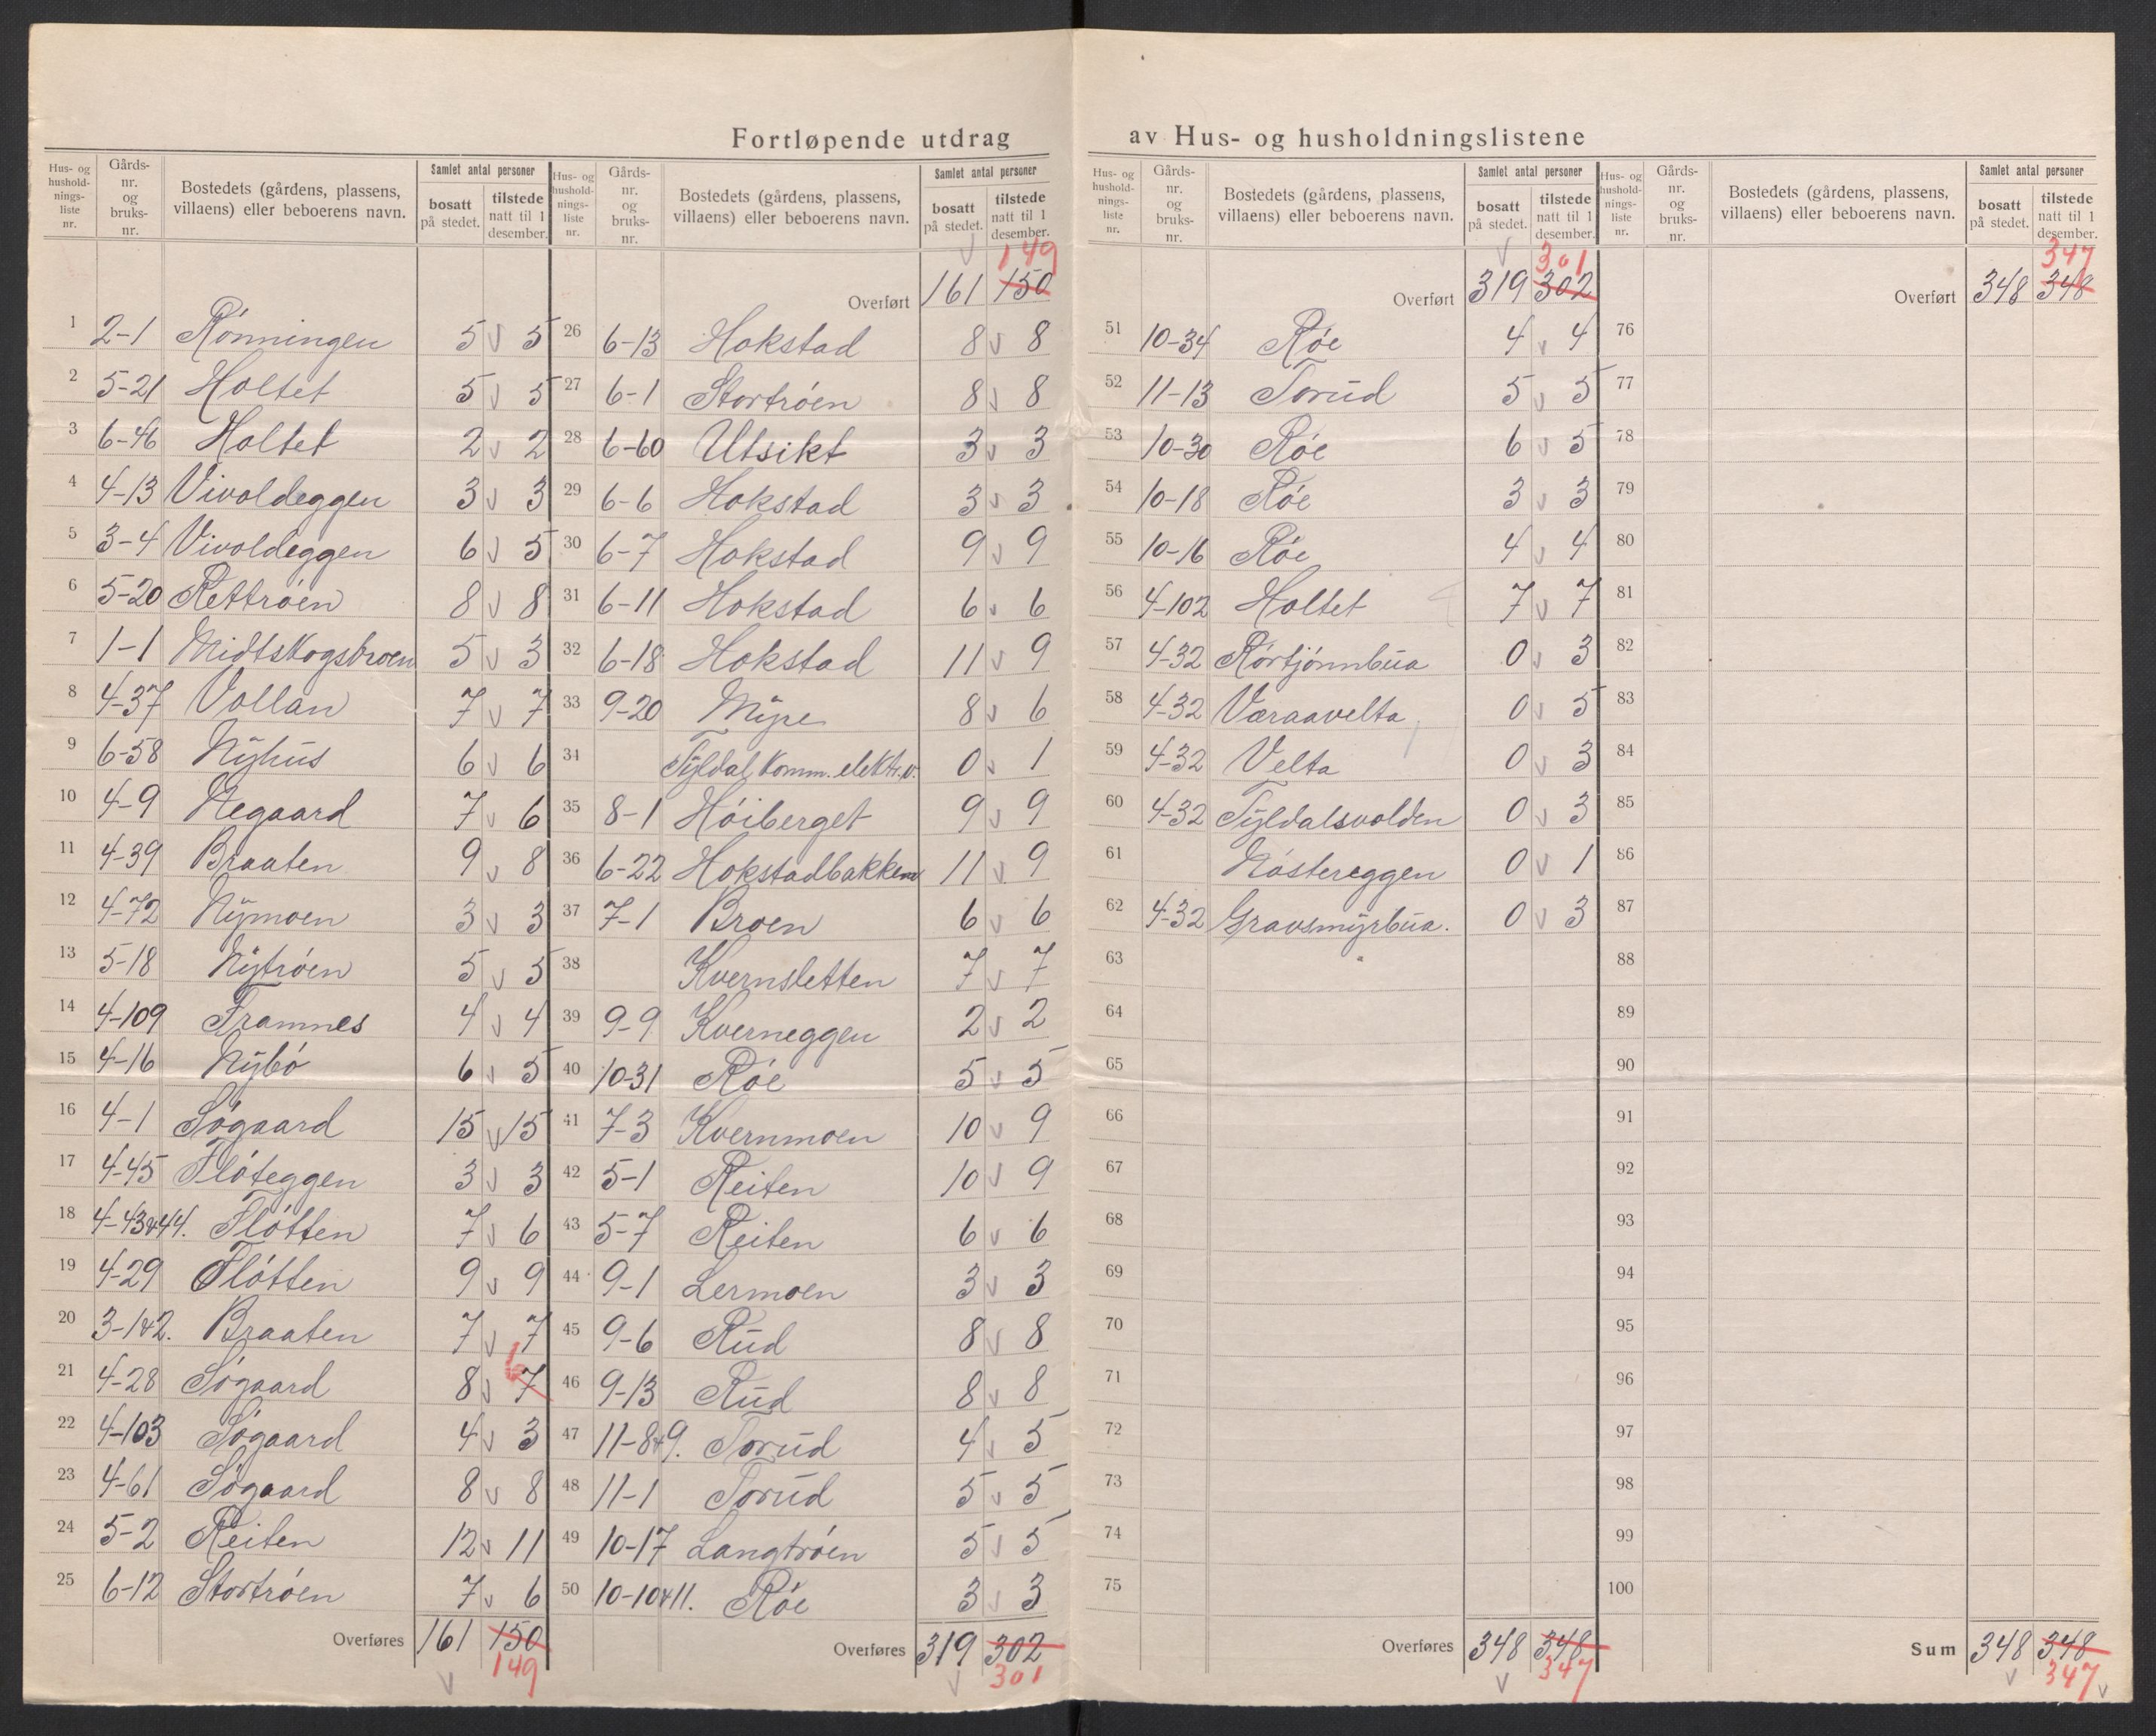 Fortløpende utdrag av Hus- og husholdningslistene
Hus- og hushold- nings- liste nr. | Gårds- nr. og bruks- nr. | Bostedets (gårdens, plassens, villaens) eller beboerens navn. | Samlet antal personer | bosatt på stedet. | tilstede natt til 1 desember.
1 2-1 Rönningen 5 v 5
2 5-21 Holtet 5 v 5
3 6-46 Holtet 2 v 2
4 4-13 Vivoldeggen 3 v 3
5 3-4 Vivoldeggen 6 v 5
6 5-20 Rettröen 8 v 8
7 1-1 Midtskogsbroen 5 v 3
8 4-37 Vollan 7 v 7
9 6-58 Nyhus 6 v 6
10 4-9 Negaard 7 v 6
11 4-39 Braaten 9 v 8
12 4-72 Nymoen 3 v 3
13 5-18 Nytröen 5 v 5
14 4-109 Framnes 4 v 4
15 4-16 Nybö 6 v 5
16 4-1 Sögaard 15 v 15
17 4-45 Flöteggen 3 v 3
18 4-43&44. Flötten 7 v 6
19 4-29 Flötten 9 v 9
20 3-1&2. Braaten 7 v 7
21 4-28 Sögaard 8 v 7 6
22 4-103 Sögaard 4 v 3
23 4-61 Sögaard 8 v 8
24 5-2 Reiten 12 v 11
25 6-12 Stortröen 7 v 6
Overføres 161 150
v 149
Hus- og hushold- nings- liste nr. | Gårds- nr. og bruks- nr. | Bostedets (gårdens, plassens, villaens) eller beboerens navn. | Samlet antal personer | bosatt på stedet. | tilstede natt til 1 desember.
v 149
Overført 161 150
26 6-13 Hokstad 8 v 8
27 6-1 Stortröen 8 v 8
28 6-60 Utsikt 3 v 3
29 6-6 Hokstad 3 v 3
30 6-7 Hokstad 9 v 9
31 6-11 Hokstad 6 v 6
32 6-18 Hokstad 11 v 9
33 9-20 Myre 8 v 6
34 Tyldal Komm. elektr.v. 0 v 1
35 8-1 Höiberget 9 v 9
36 6-22 Hokstadbakken 11 v 9
37 7-1 Broen 6 v 6
38 Kvernsletten 7 v 7
39 9-9 Kverneggen 2 v 2
40 10-31 Röe 5 v 5
41 7-3 Kvernmoen 10 v 9
42 5-1 Reiten 10 v 9
43 5-7 Reiten 6 v 6
44 9-1 Lermoen 3 v 3
45 9-6 Rud 8 v 8
46 9-13 Rud 8 v 8
47 11-8&9. Torud 4 v 5
48 11-1 Torud 5 v 5
49 10-17 Langtröen 5 v 5
50 10-10&11. Röe 3 v 3
Overføres 319 302
v 301
Hus- og hushold- nings- liste nr. | Gårds- nr. og bruks- nr. | Bostedets (gårdens, plassens, villaens) eller beboerens navn. | Samlet antal personer | bosatt på stedet. | tilstede natt til 1 desember.
v 301
Overført 319 302
51 10-34 Röe 4 v 4
52 11-13 Torud 5 v 5
53 10-30 Röe 6 v 5
54 10-18 Röe 3 v 3
55 10-16 Röe 4 v 4
56 4-102 Holtet 7 v 7
57 4-32 Rörtjönnbua 0 v 3
58 4-32 Væraavelta 0 v 5
59 4-32 Velta 0 v 3
60 4-32 Tyldalsvolden 0 v 3
61 Nöstereggen 0 v 1
62 4-32 Gravsmyrbua. 0 v 3
63
64
65
66
67
68
69
70
71
72
73
74
75
Overføres 348 348
v 347
Hus- og hushold- nings- liste nr. | Gårds- nr. og bruks- nr. | Bostedets (gårdens, plassens, villaens) eller beboerens navn. | Samlet antal personer | bosatt på stedet. | tilstede natt til 1 desember.
347
Overført 348 348
76
77
78
79
80
81
82
83
84
85
86
87
88
89
90
91
92
93
94
95
96
97
98
99
100
Sum 348 348
v 347 v